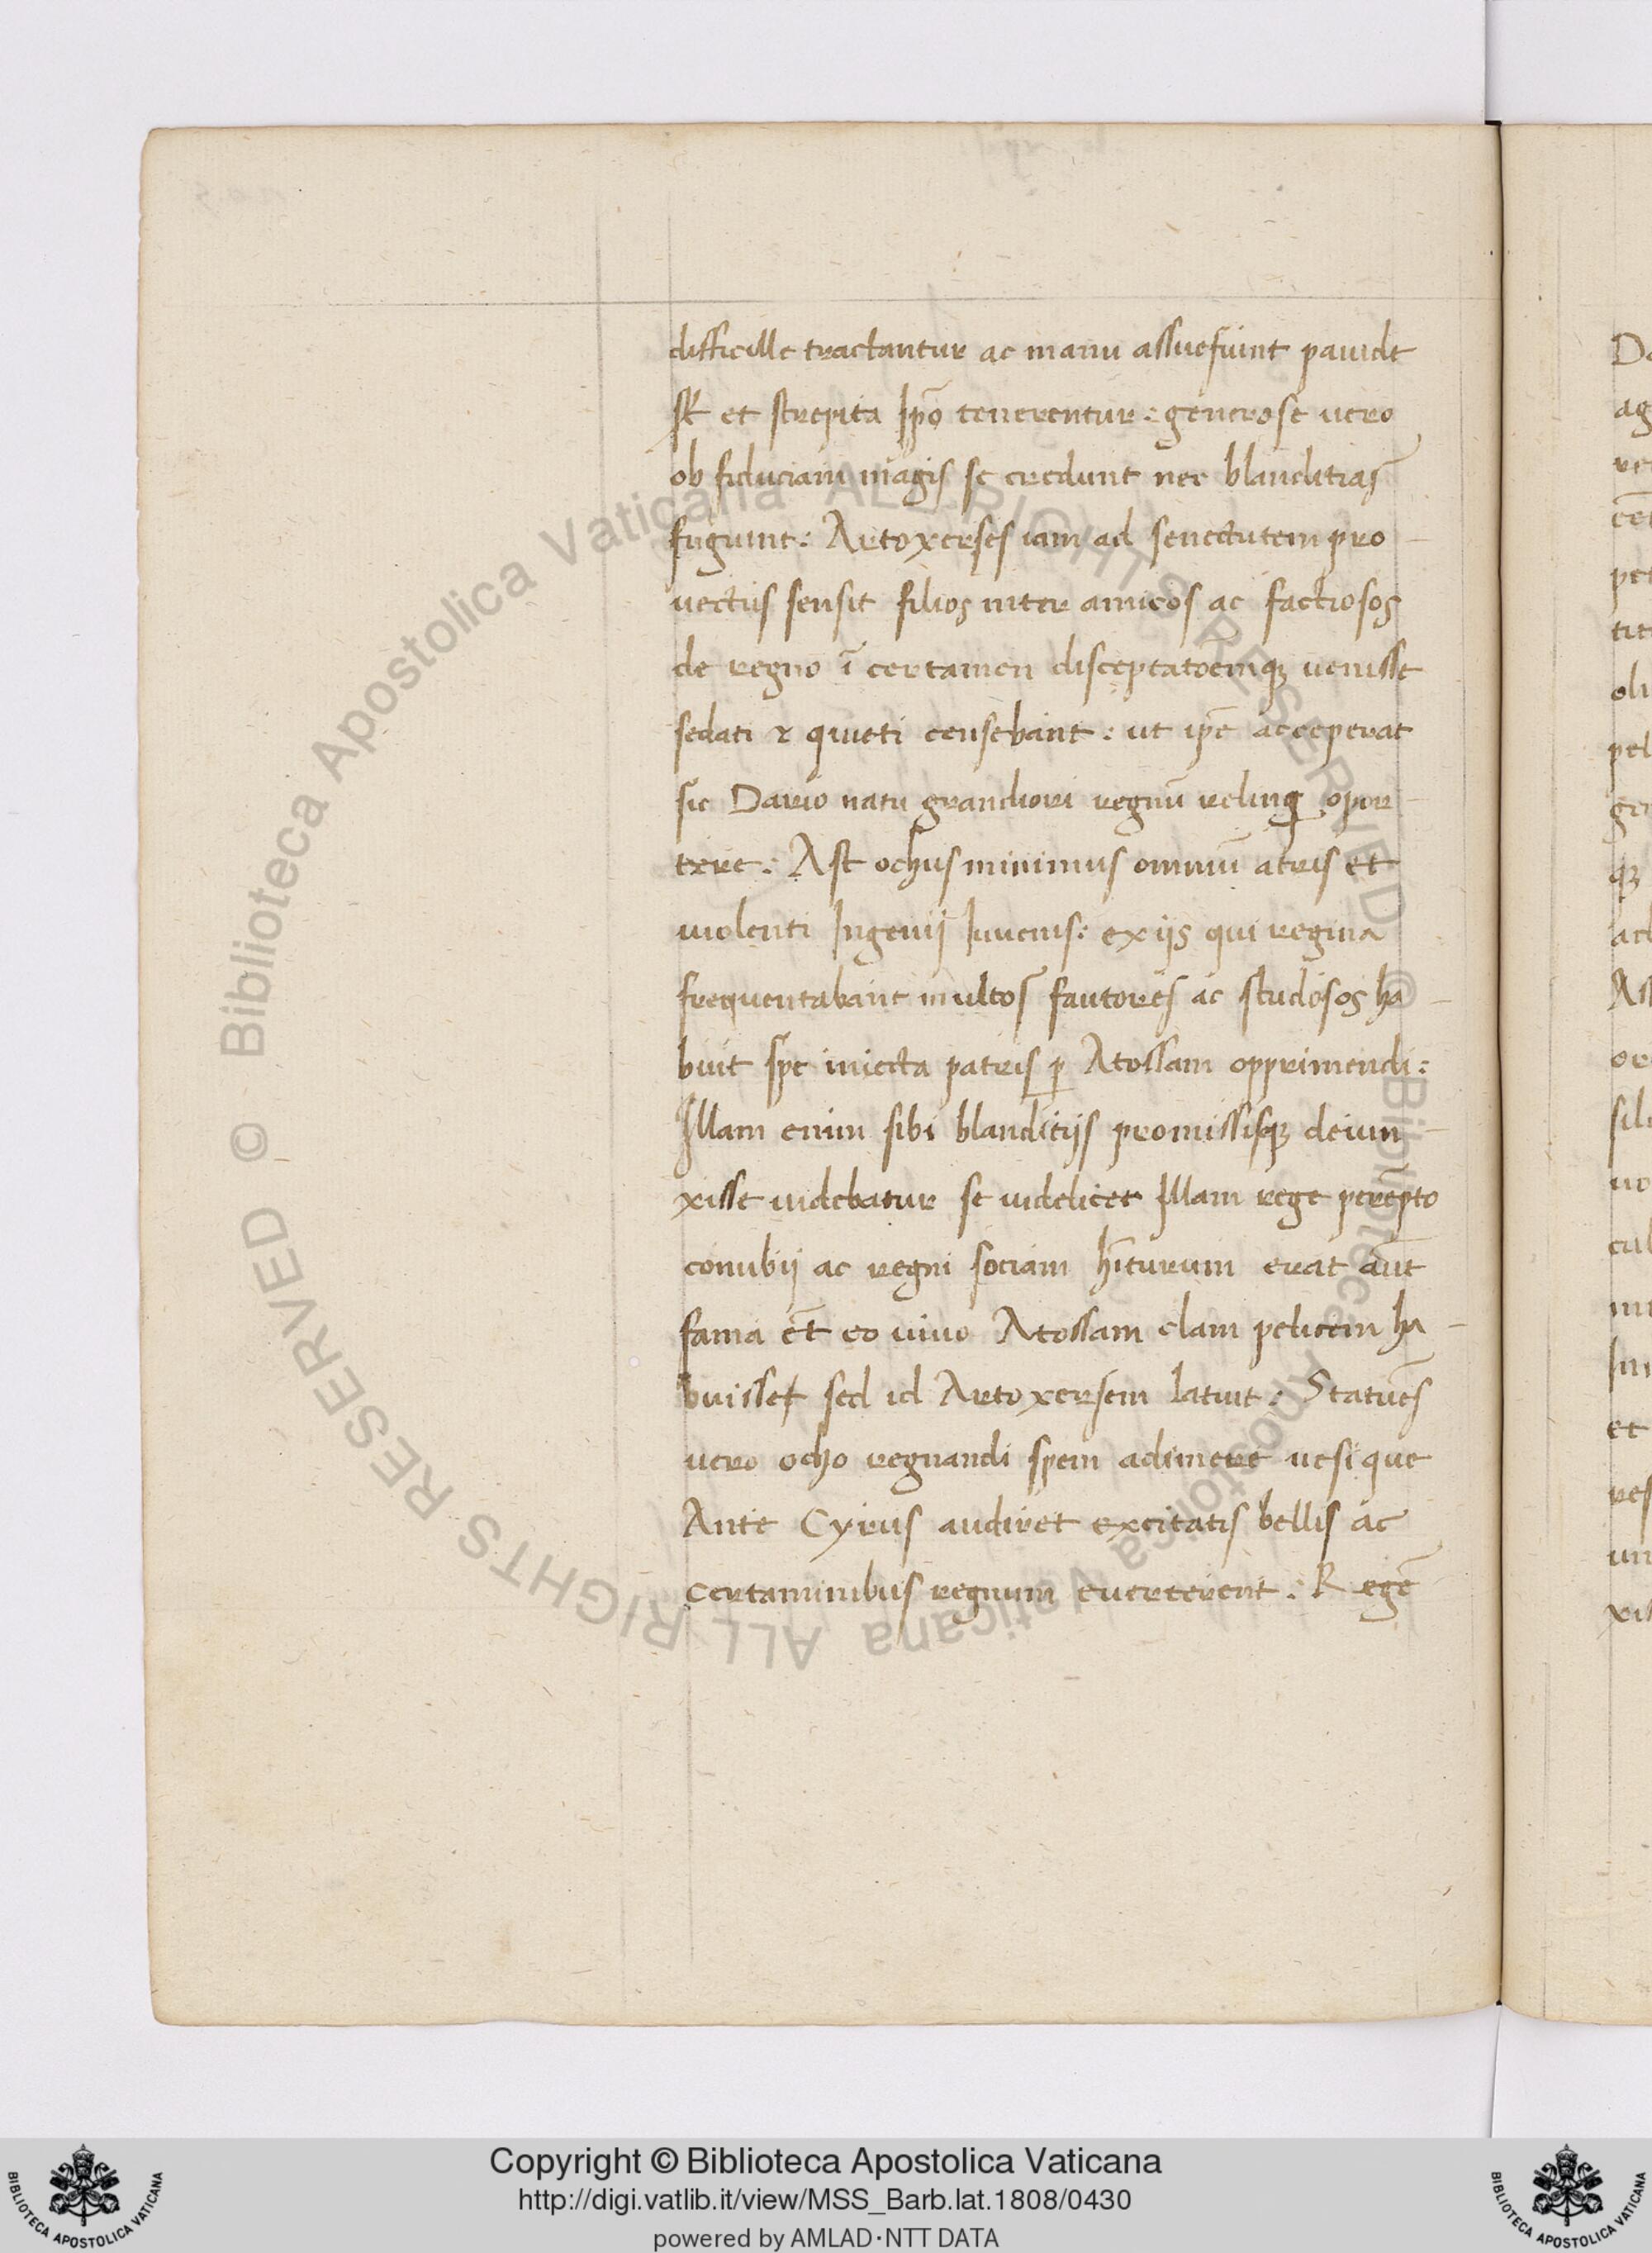 difficille tractantur ac manu assuefiunt pauide
sꝫ et strepita Ipõ tenerentur: generose uero
ob fiduciam magis se credunt nec blanditias
fugiunt: Artoxerses iam ad senectutem pro
uectus sensit filios inter amicos ac factiosos
de regno ĩ certamen disceptatoemqꝫ uenisse
sedati & quieti censebant: ut ipẽ acceperat
sic Dario natu grandiori regnũ relinq opor
tere: Ast ochus minimus omniũ atris et
uiolenti Ingenij Iuuenis: ex ijs qui regina
frequentabant multos fautores ac studosos ha
buit spe iniecta patris ꝑ Atossam opprimendi:
Illam enim sibi blanditijs promissisqꝫ deiun
xisse uidebatur se uidelicet Illam rege perepto
conubij ac regni sociam hĩturum erat aũt
fama et̃ eo uiuo Atossam clam pelicem ha
buisset sed id Artoxersem latuit: Statuẽs
uero ocho regnandi spem adimere nesi que
Ante Cyrus audiret excitatis bellis ac
certaminibus regnum euerterent: Regẽ
Copyright © Biblioteca Apostolica Vaticana
http://digi.vatlib.it/view/MSS_Barb.lat.1808/0430
powered by AMLAD·NTT DATA